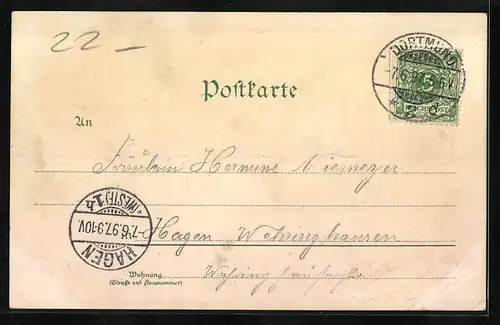 22 –
DORTMUND
7.6.9
5
REICHSPOST
Postkarte
An
Fräulein Hermine Niemeyer
Hagen Wehringhausen
HAGEN
7/6.97.9-10V.
(WESTF.) 1
Wohnung
(Straße und Hausnummer)